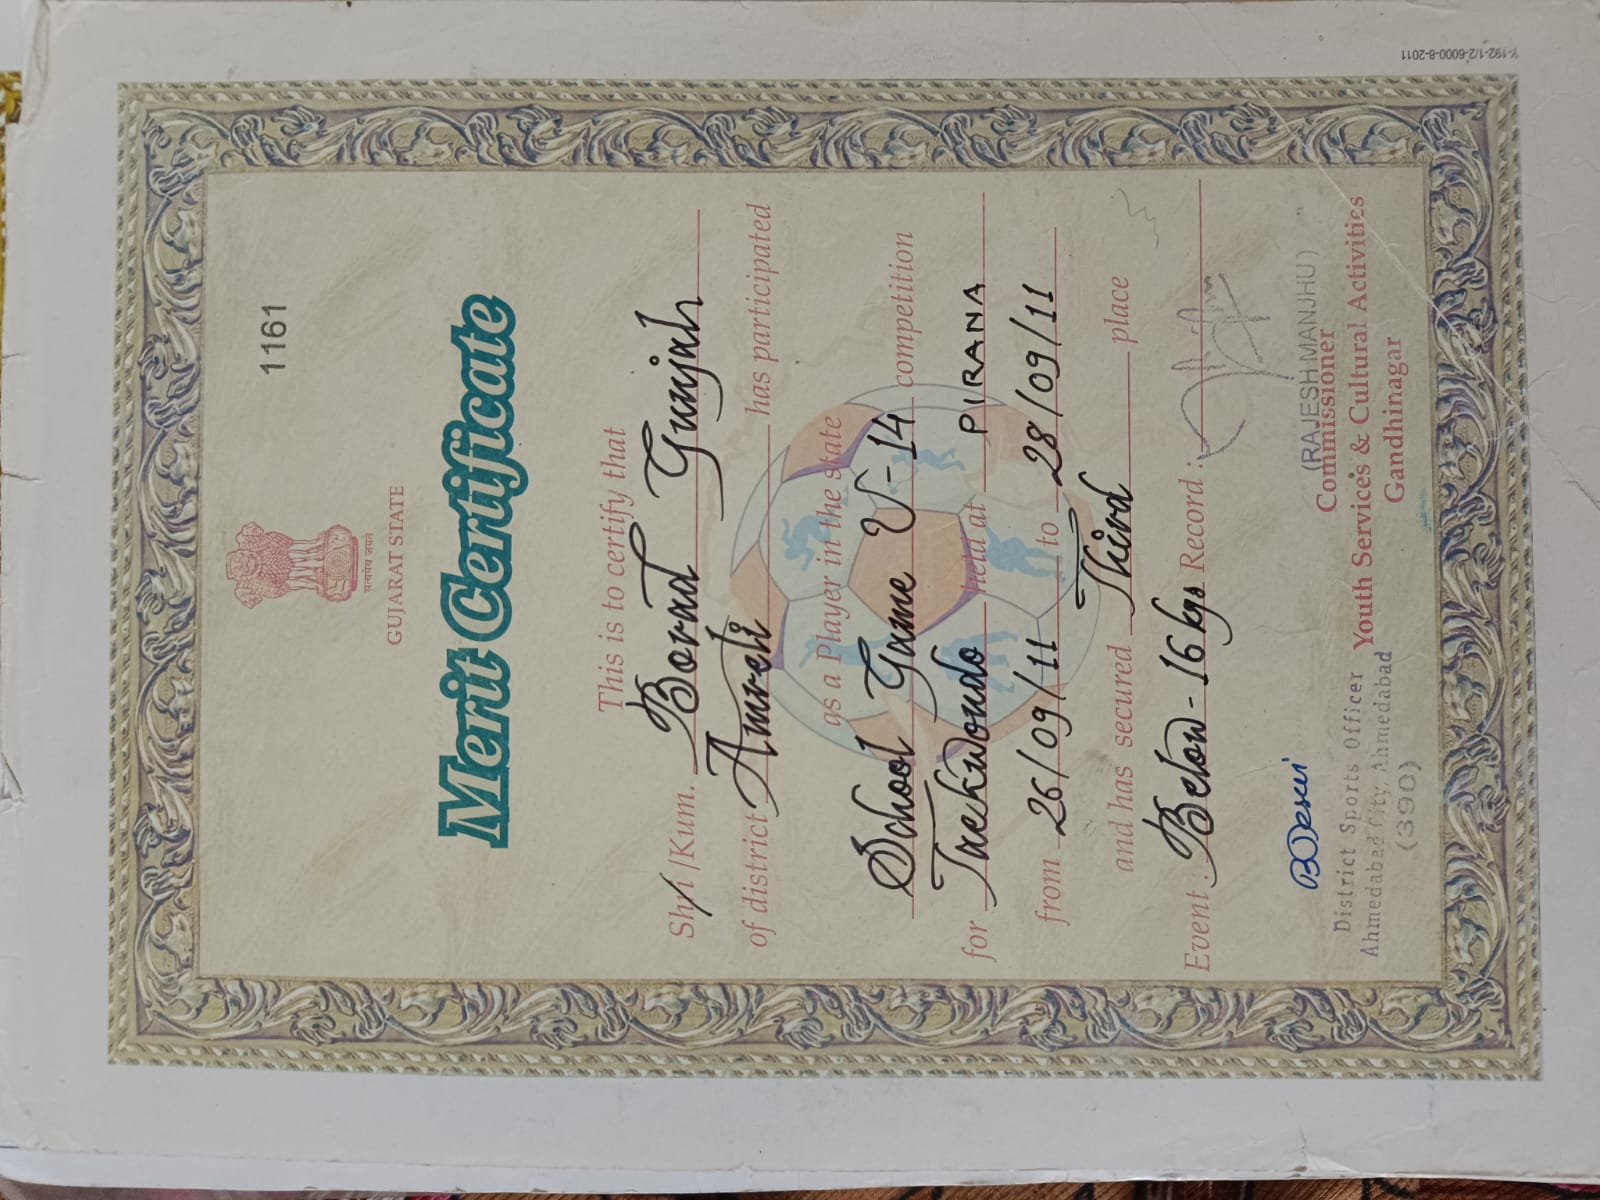 1161
सत्यमेव जयते
GUJARAT STATE
Merit Certificate
This is to certify that
Shri /Kum. Borad Gunjah
of district Amreli has participated
as a Player in the state
School Game U-14 competition
for Taekwondo held at PIRANA
from 26/09/11 to 28/09/11
and has secured Third place
Event : Below - 16 kgs Record :
BDesai
(RAJESH MANJHU)
District Sports Officer
Ahmedabad City, Ahmedabad
(390)
Commissioner
Youth Services & Cultural Activities
Gandhinagar
Y-192-1/2-6000-8-2011